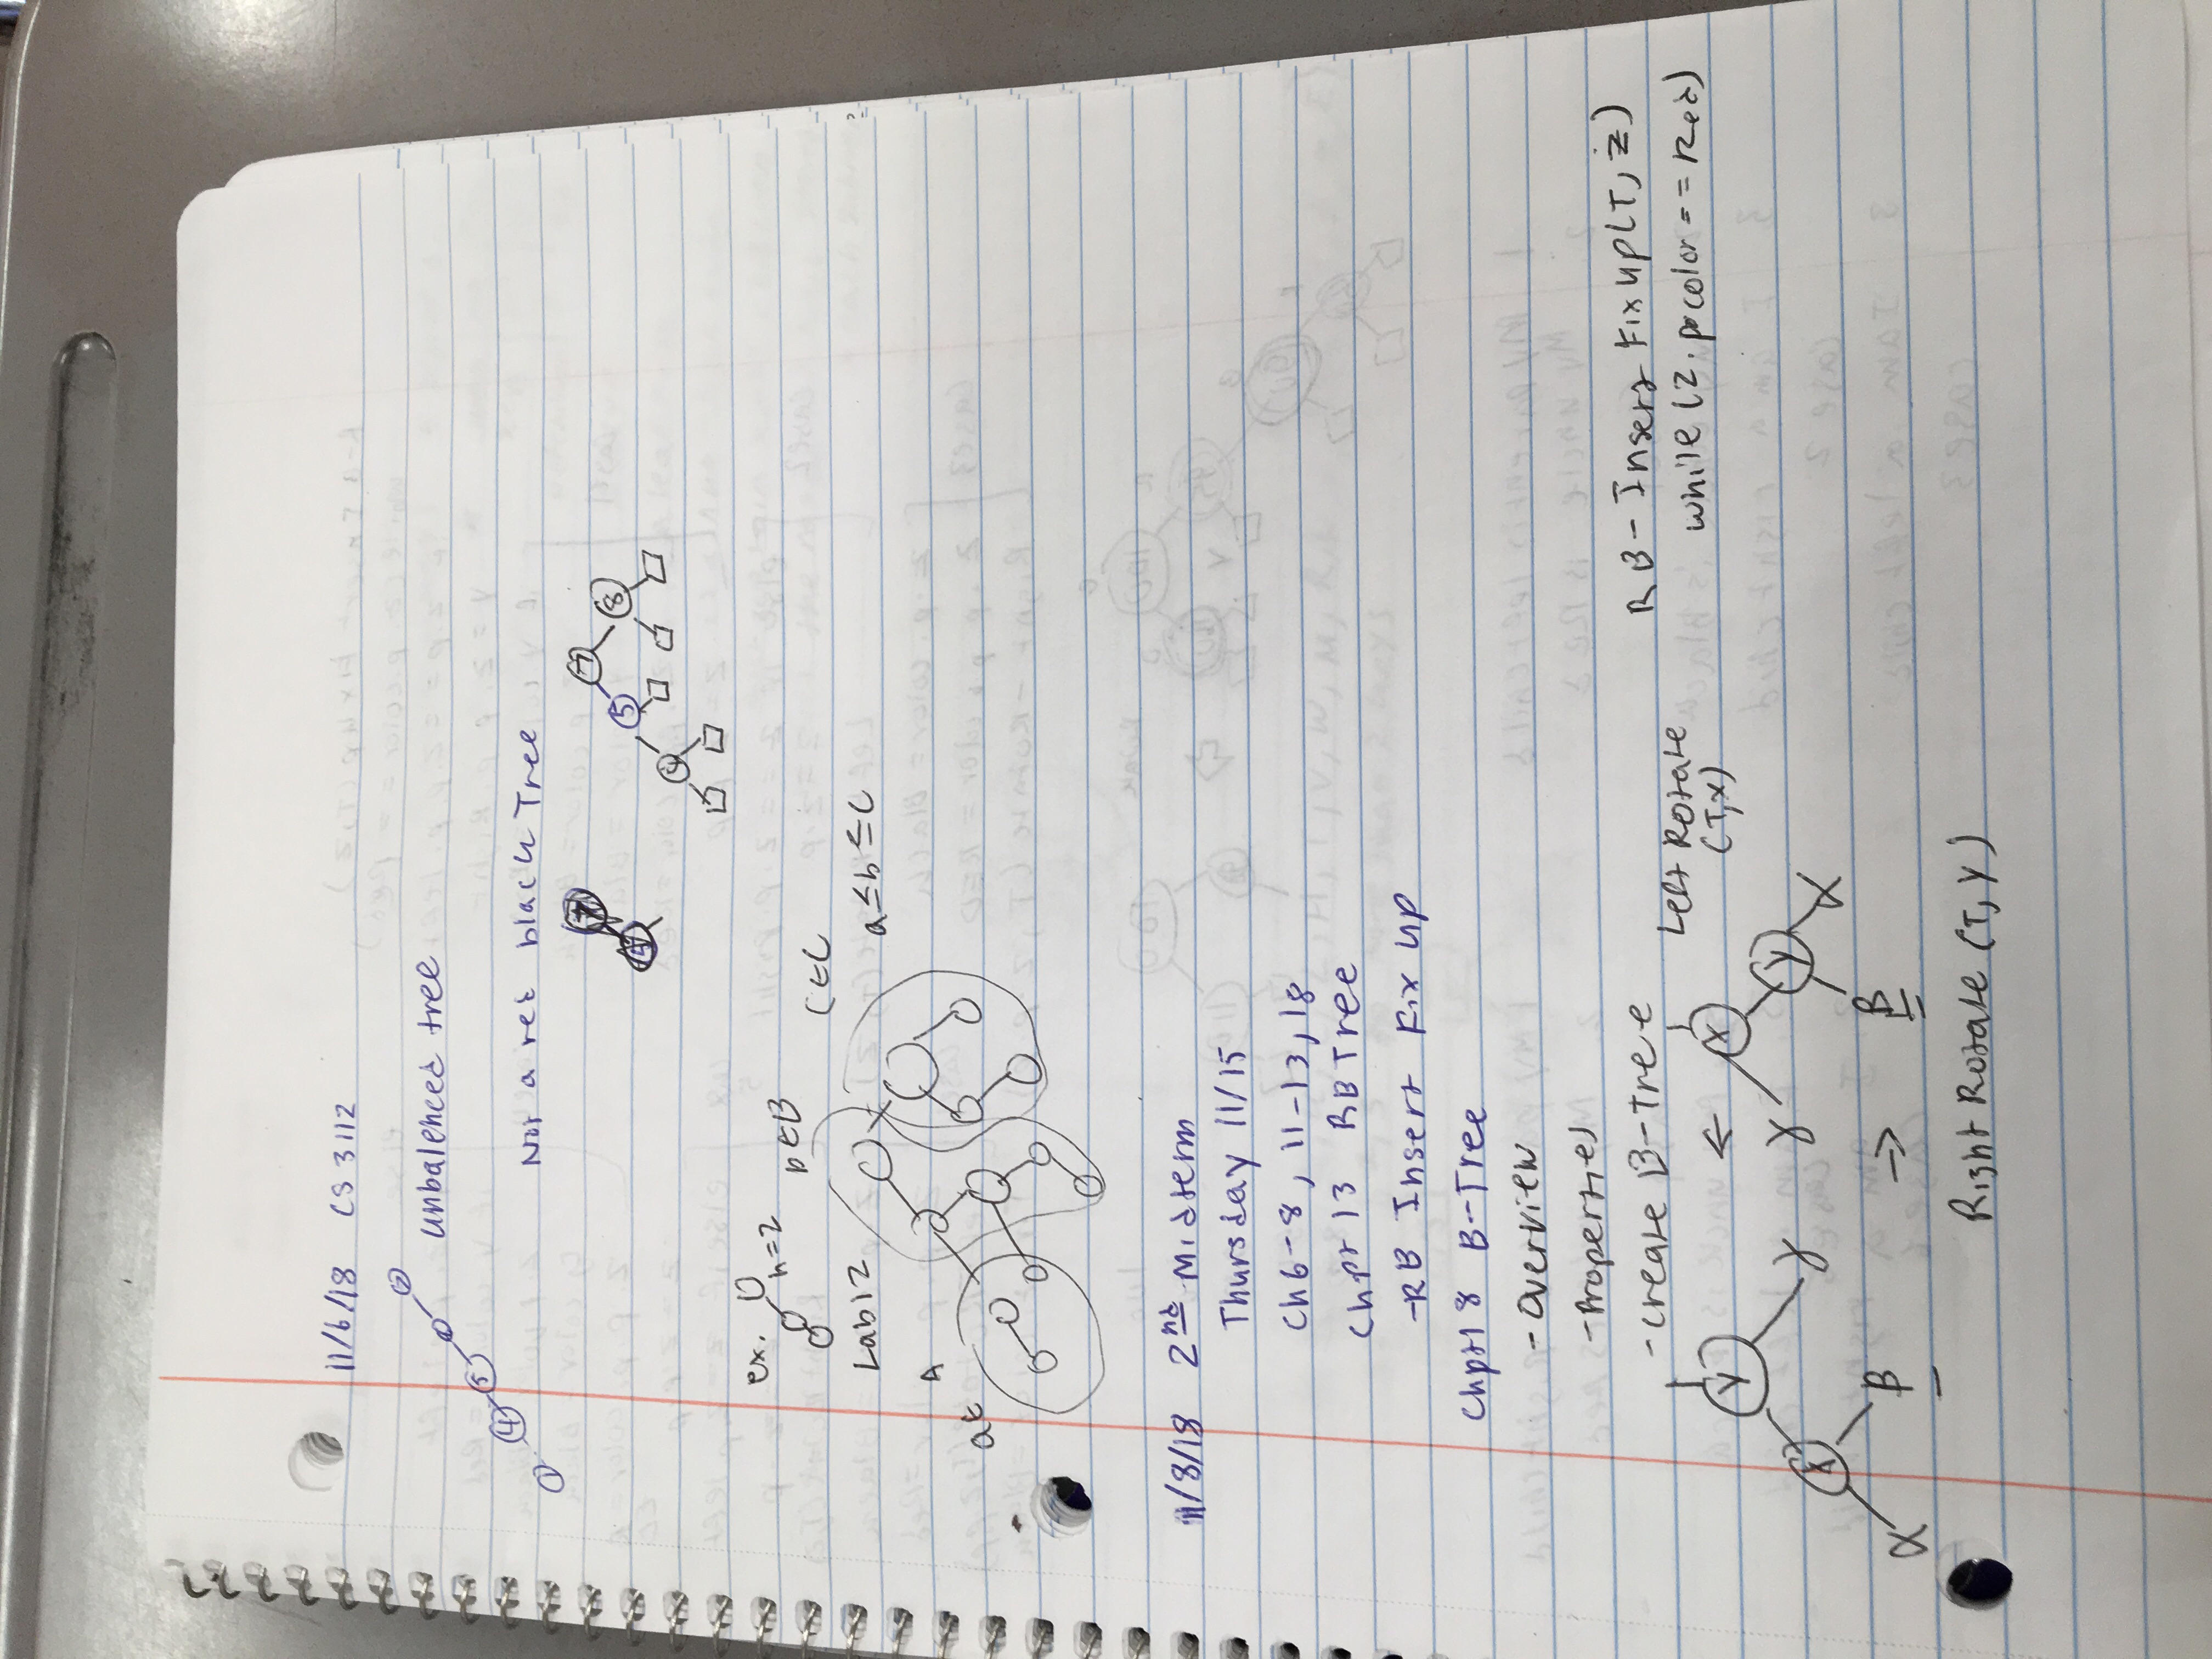 11/6/18 CS 3112
unbalenced tree
5
4
Not a red black Tree
7
7
5
8
4
ex.
h=2
b ∈ B
C ∈ C
Lab 12
a ≤ b ≤ C
A
a ∈
11/8/18 2nd Midterm
Thursday 11/15
Ch 6-8, 11-13, 18
Chpt 13 RB Tree
-RB Insert Fix up
Chpt 18 B-Tree
- Overview
- Properties
- Create B-Tree
RB-Insert Fix up (T, z)
while (z.p.color == Red)
Left Rotate
(T,x)
Y ← X
X γ γ Y
α β → β α
Right Rotate (T, Y)